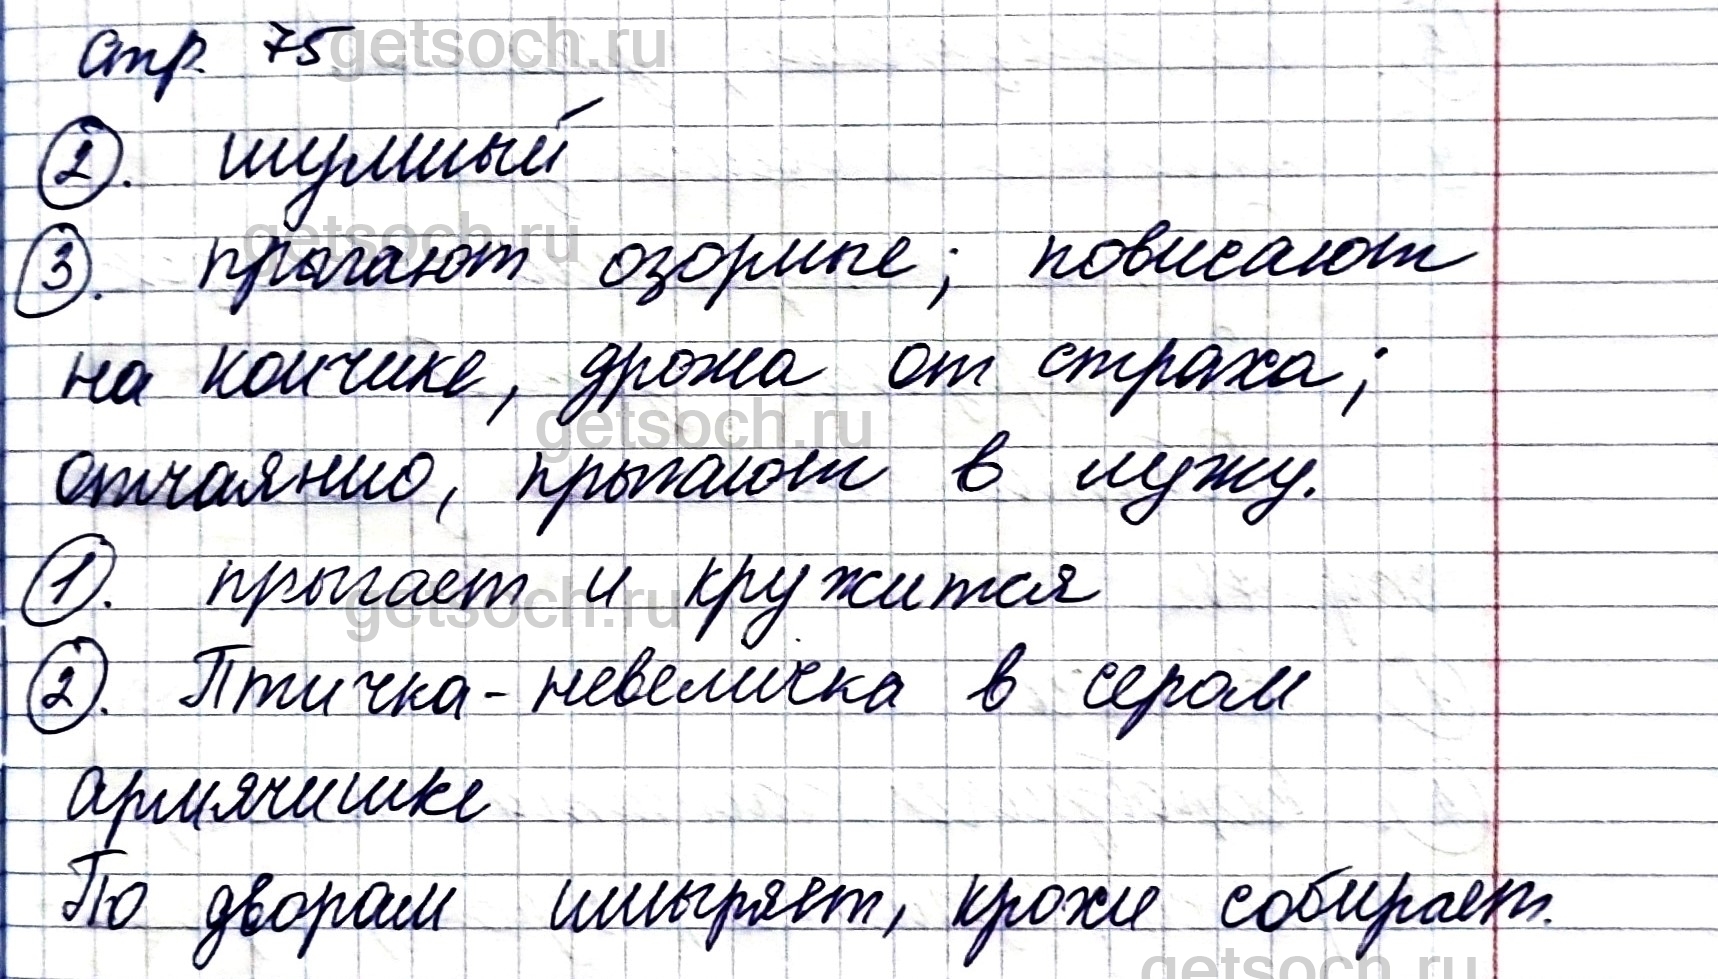 стр. 75 getsoch.ru
2. шумный
getsoch.ru
3. прыгают озорные; повисают
на кончике, дрожа от страха;
getsoch.ru
отчаянно, прыгают в лужу.
1. прыгает и кружится
getsoch.ru
2. Птичка-невеличка в сером
армячишке
По дворам шныряет, крохи собирает.
getsoch.ru